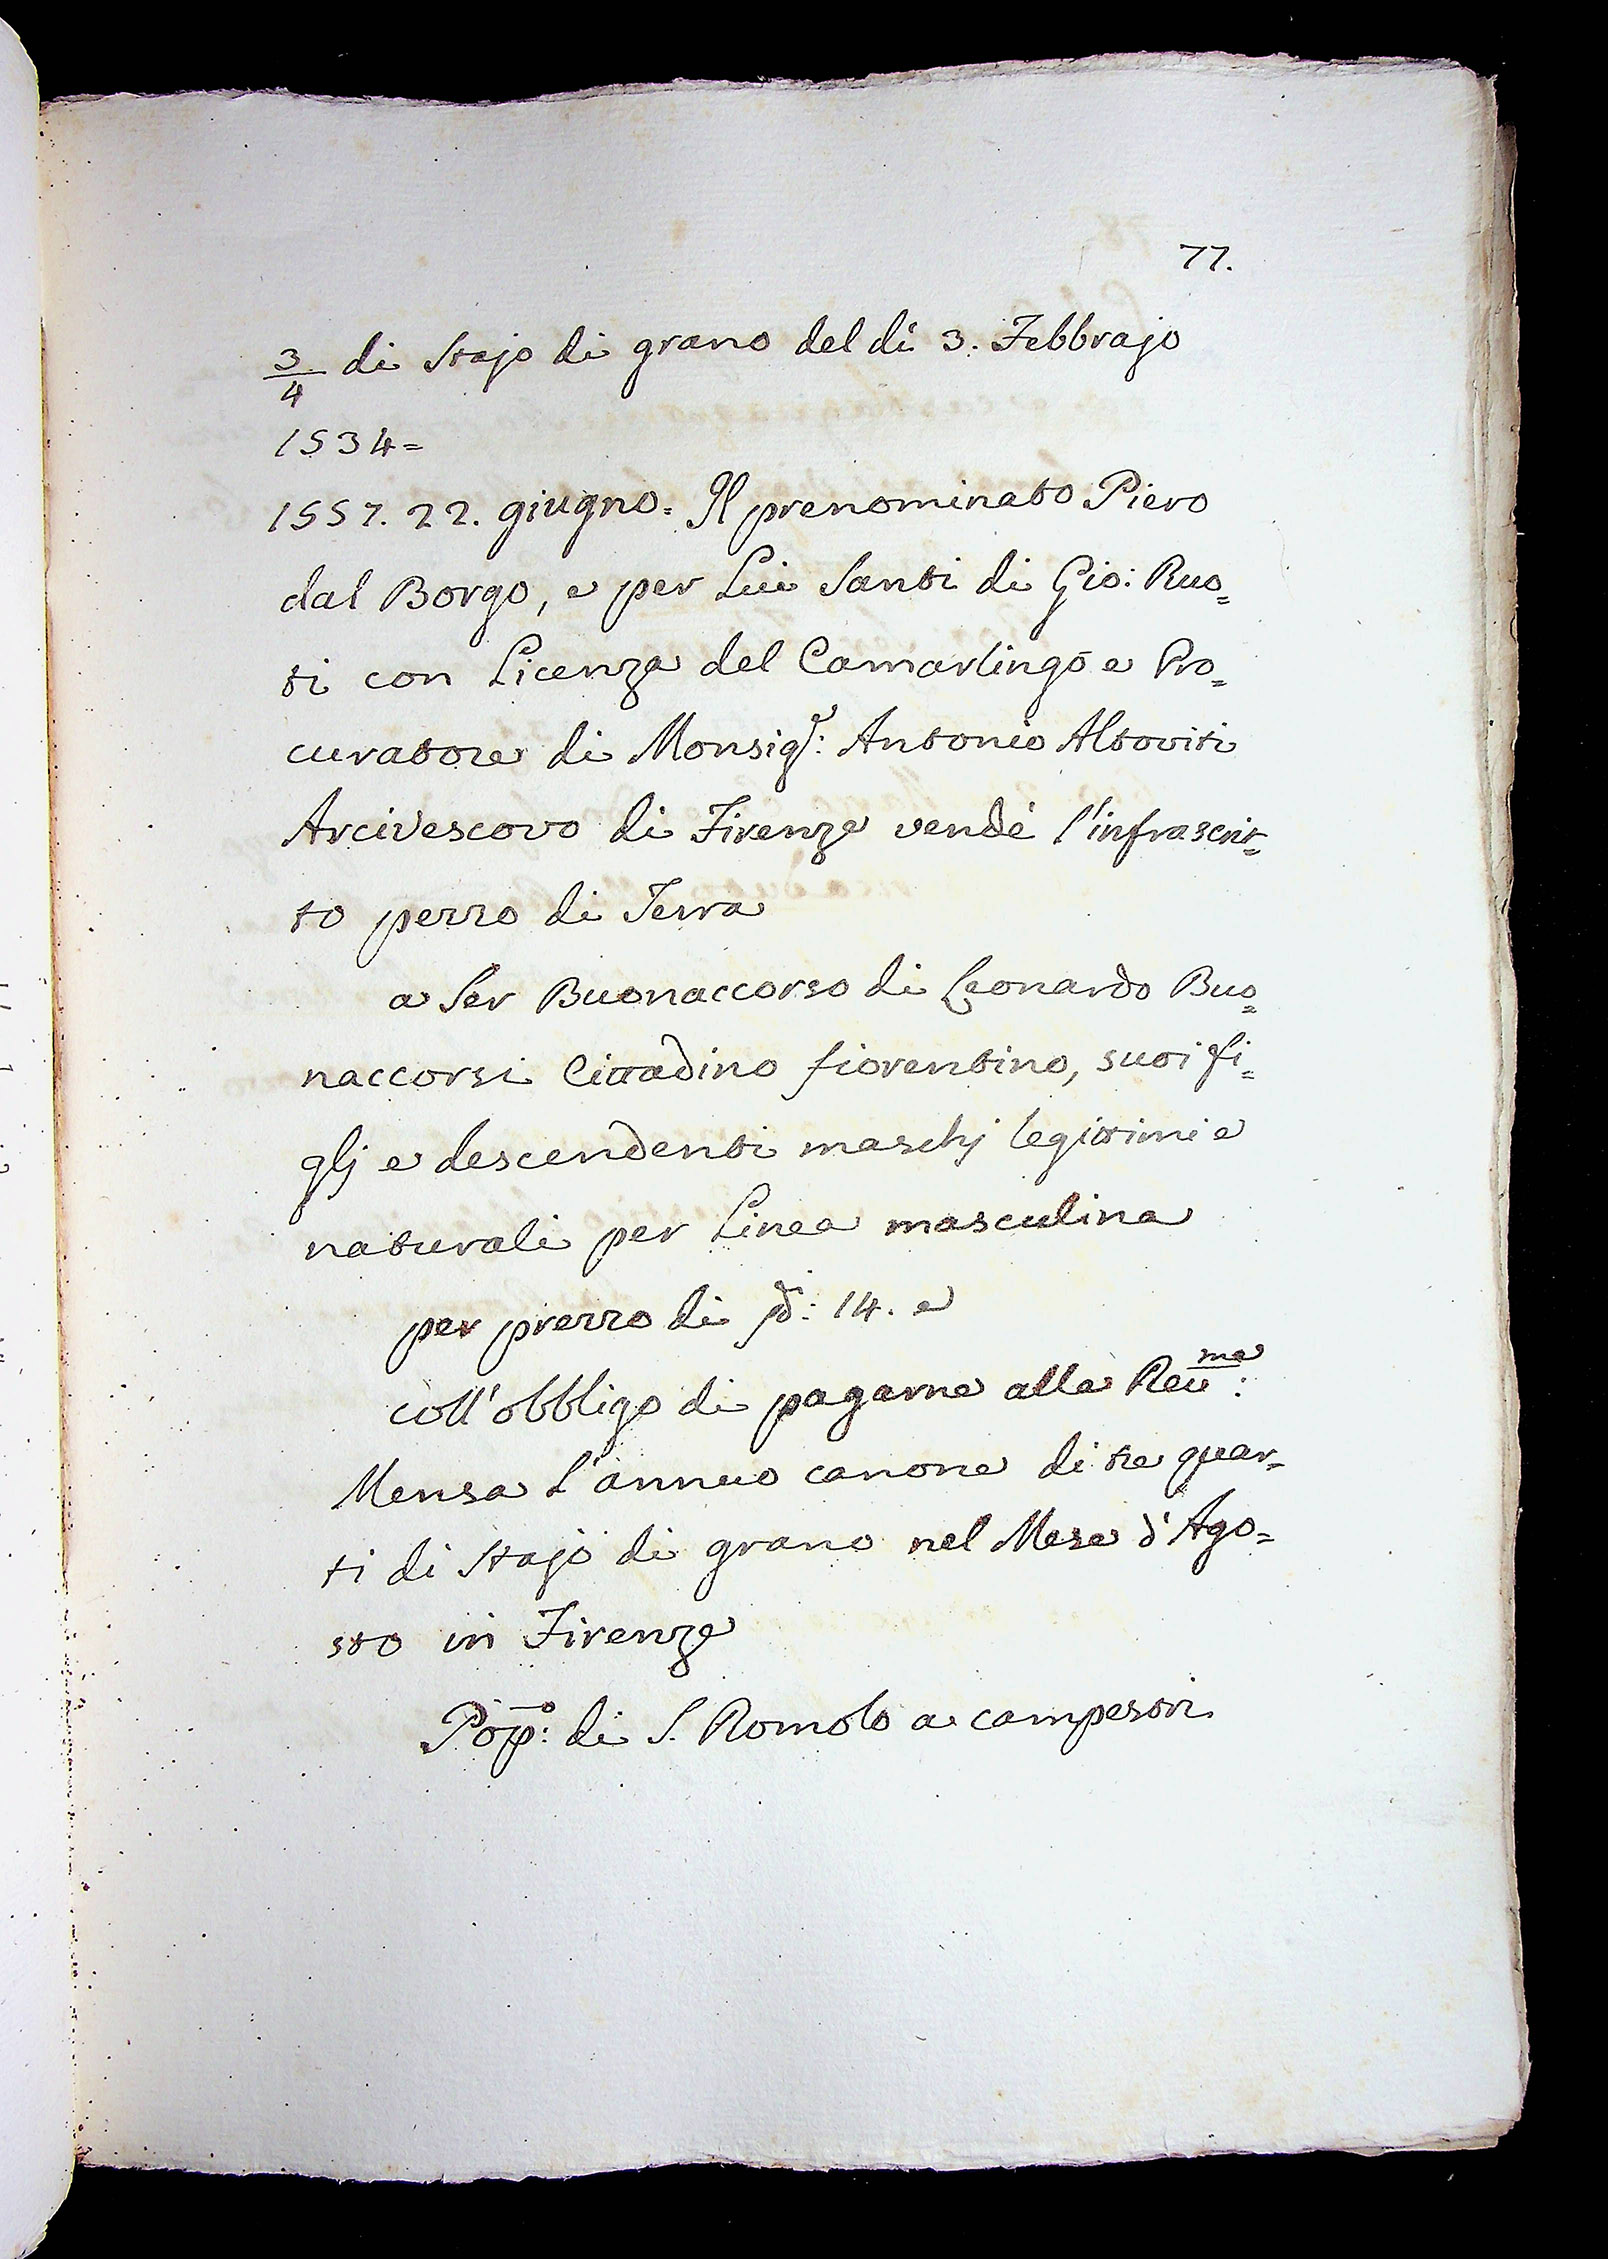 77.
3/4 di Stajo di grano del dì 3. Febbrajo
1534=
1557. 22. giugno. Il prenominato Piero
dal Borgo, e per Lui Santi di Gio: Ruo=
ti con Licenza del Camarlingo e Pro=
curatore di Monsig.r: Antonio Altoviti
Arcivescovo di Firenze vendè l'infrascrit=
to pezzo di Terra
a Ser Buonaccorso di Leonardo Buo=
naccorsi Cittadino fiorentino, suoi fi=
glj e descendenti maschj legittimi e
naturali per Linea masculina
per prezzo di 14. e
coll'obbligo di pagarne alla Reu:ma
Mensa l'annuo canone di tre quar=
ti di Stajo di grano nel Mese d'Ago=
sto in Firenze
Pop:o di S. Romolo a campestri